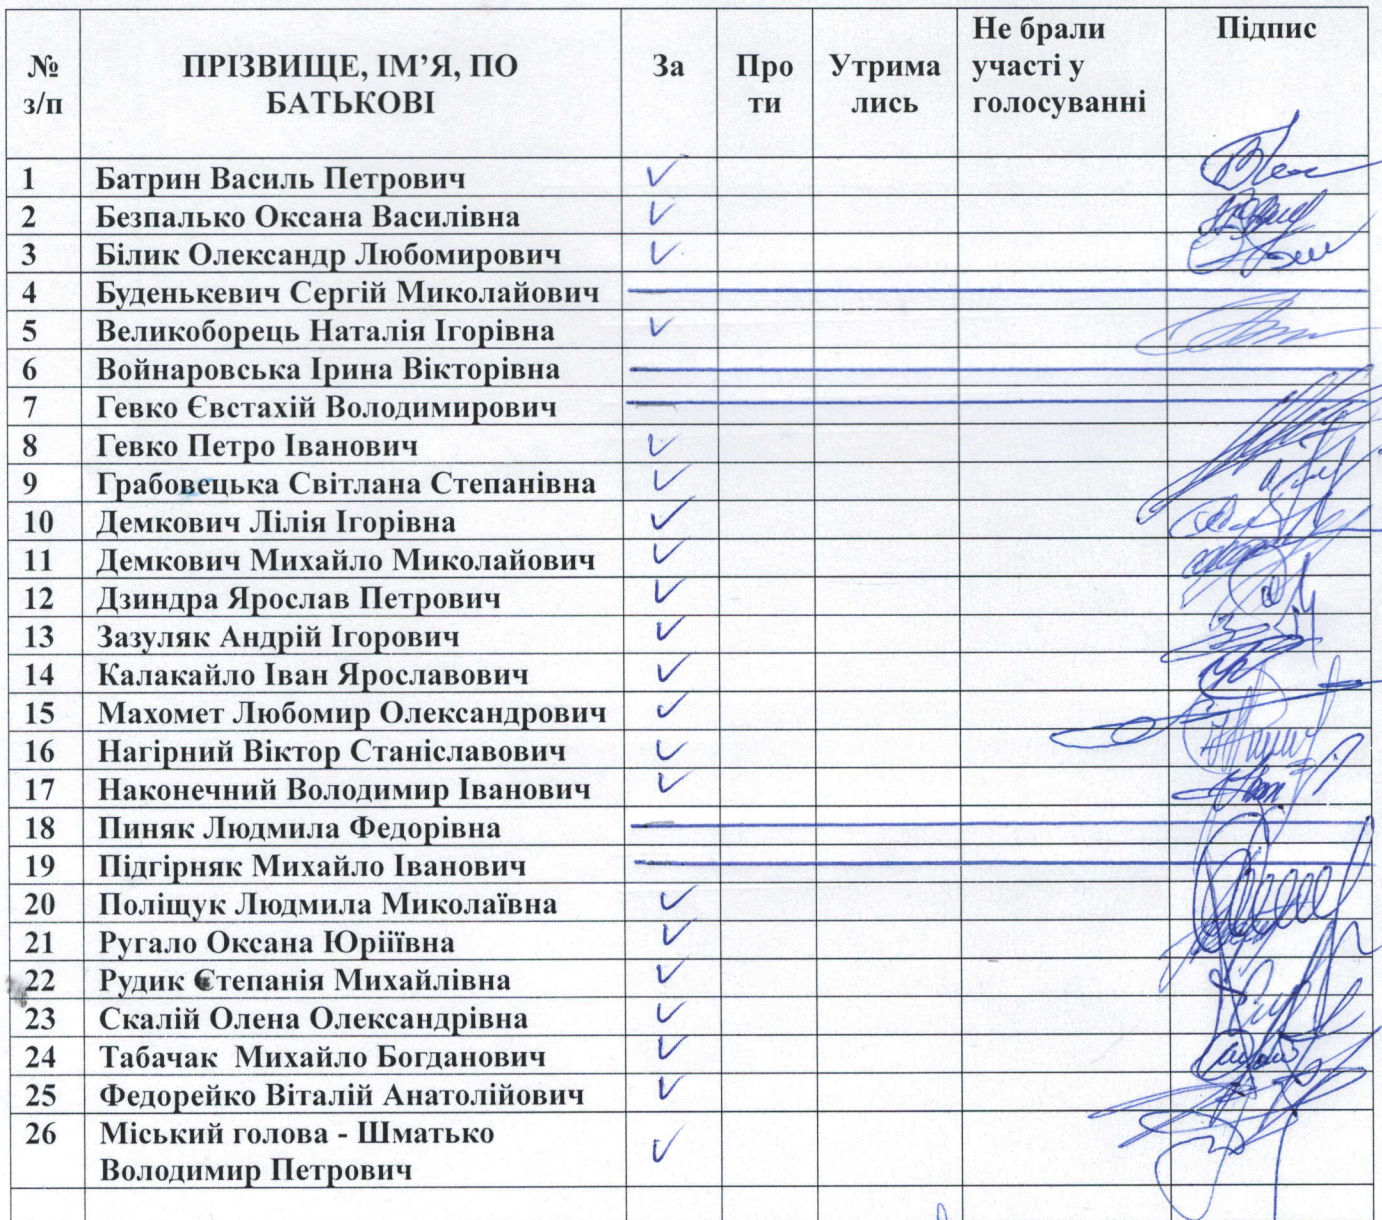 № з/п ПРІЗВИЩЕ, ІМ’Я, ПО БАТЬКОВІ За Про ти Утрима лись Не брали участі у голосуванні Підпис
1 Батрин Василь Петрович ✓
2 Безпалько Оксана Василівна ✓
3 Білик Олександр Любомирович ✓
4 Буденькевич Сергій Миколайович
5 Великоборець Наталія Ігорівна ✓
6 Войнаровська Ірина Вікторівна
7 Гевко Євстахій Володимирович
8 Гевко Петро Іванович ✓
9 Грабовецька Світлана Степанівна ✓
10 Демкович Лілія Ігорівна ✓
11 Демкович Михайло Миколайович ✓
12 Дзиндра Ярослав Петрович ✓
13 Зазуляк Андрій Ігорович ✓
14 Калакайло Іван Ярославович ✓
15 Махомет Любомир Олександрович ✓
16 Нагірний Віктор Станіславович ✓
17 Наконечний Володимир Іванович ✓
18 Пиняк Людмила Федорівна
19 Підгірняк Михайло Іванович
20 Поліщук Людмила Миколаївна ✓
21 Ругало Оксана Юріїівна ✓
22 Рудик Степанія Михайлівна ✓
23 Скалій Олена Олександрівна ✓
24 Табачак Михайло Богданович ✓
25 Федорейко Віталій Анатолійович ✓
26 Міський голова - Шматько
Володимир Петрович ✓